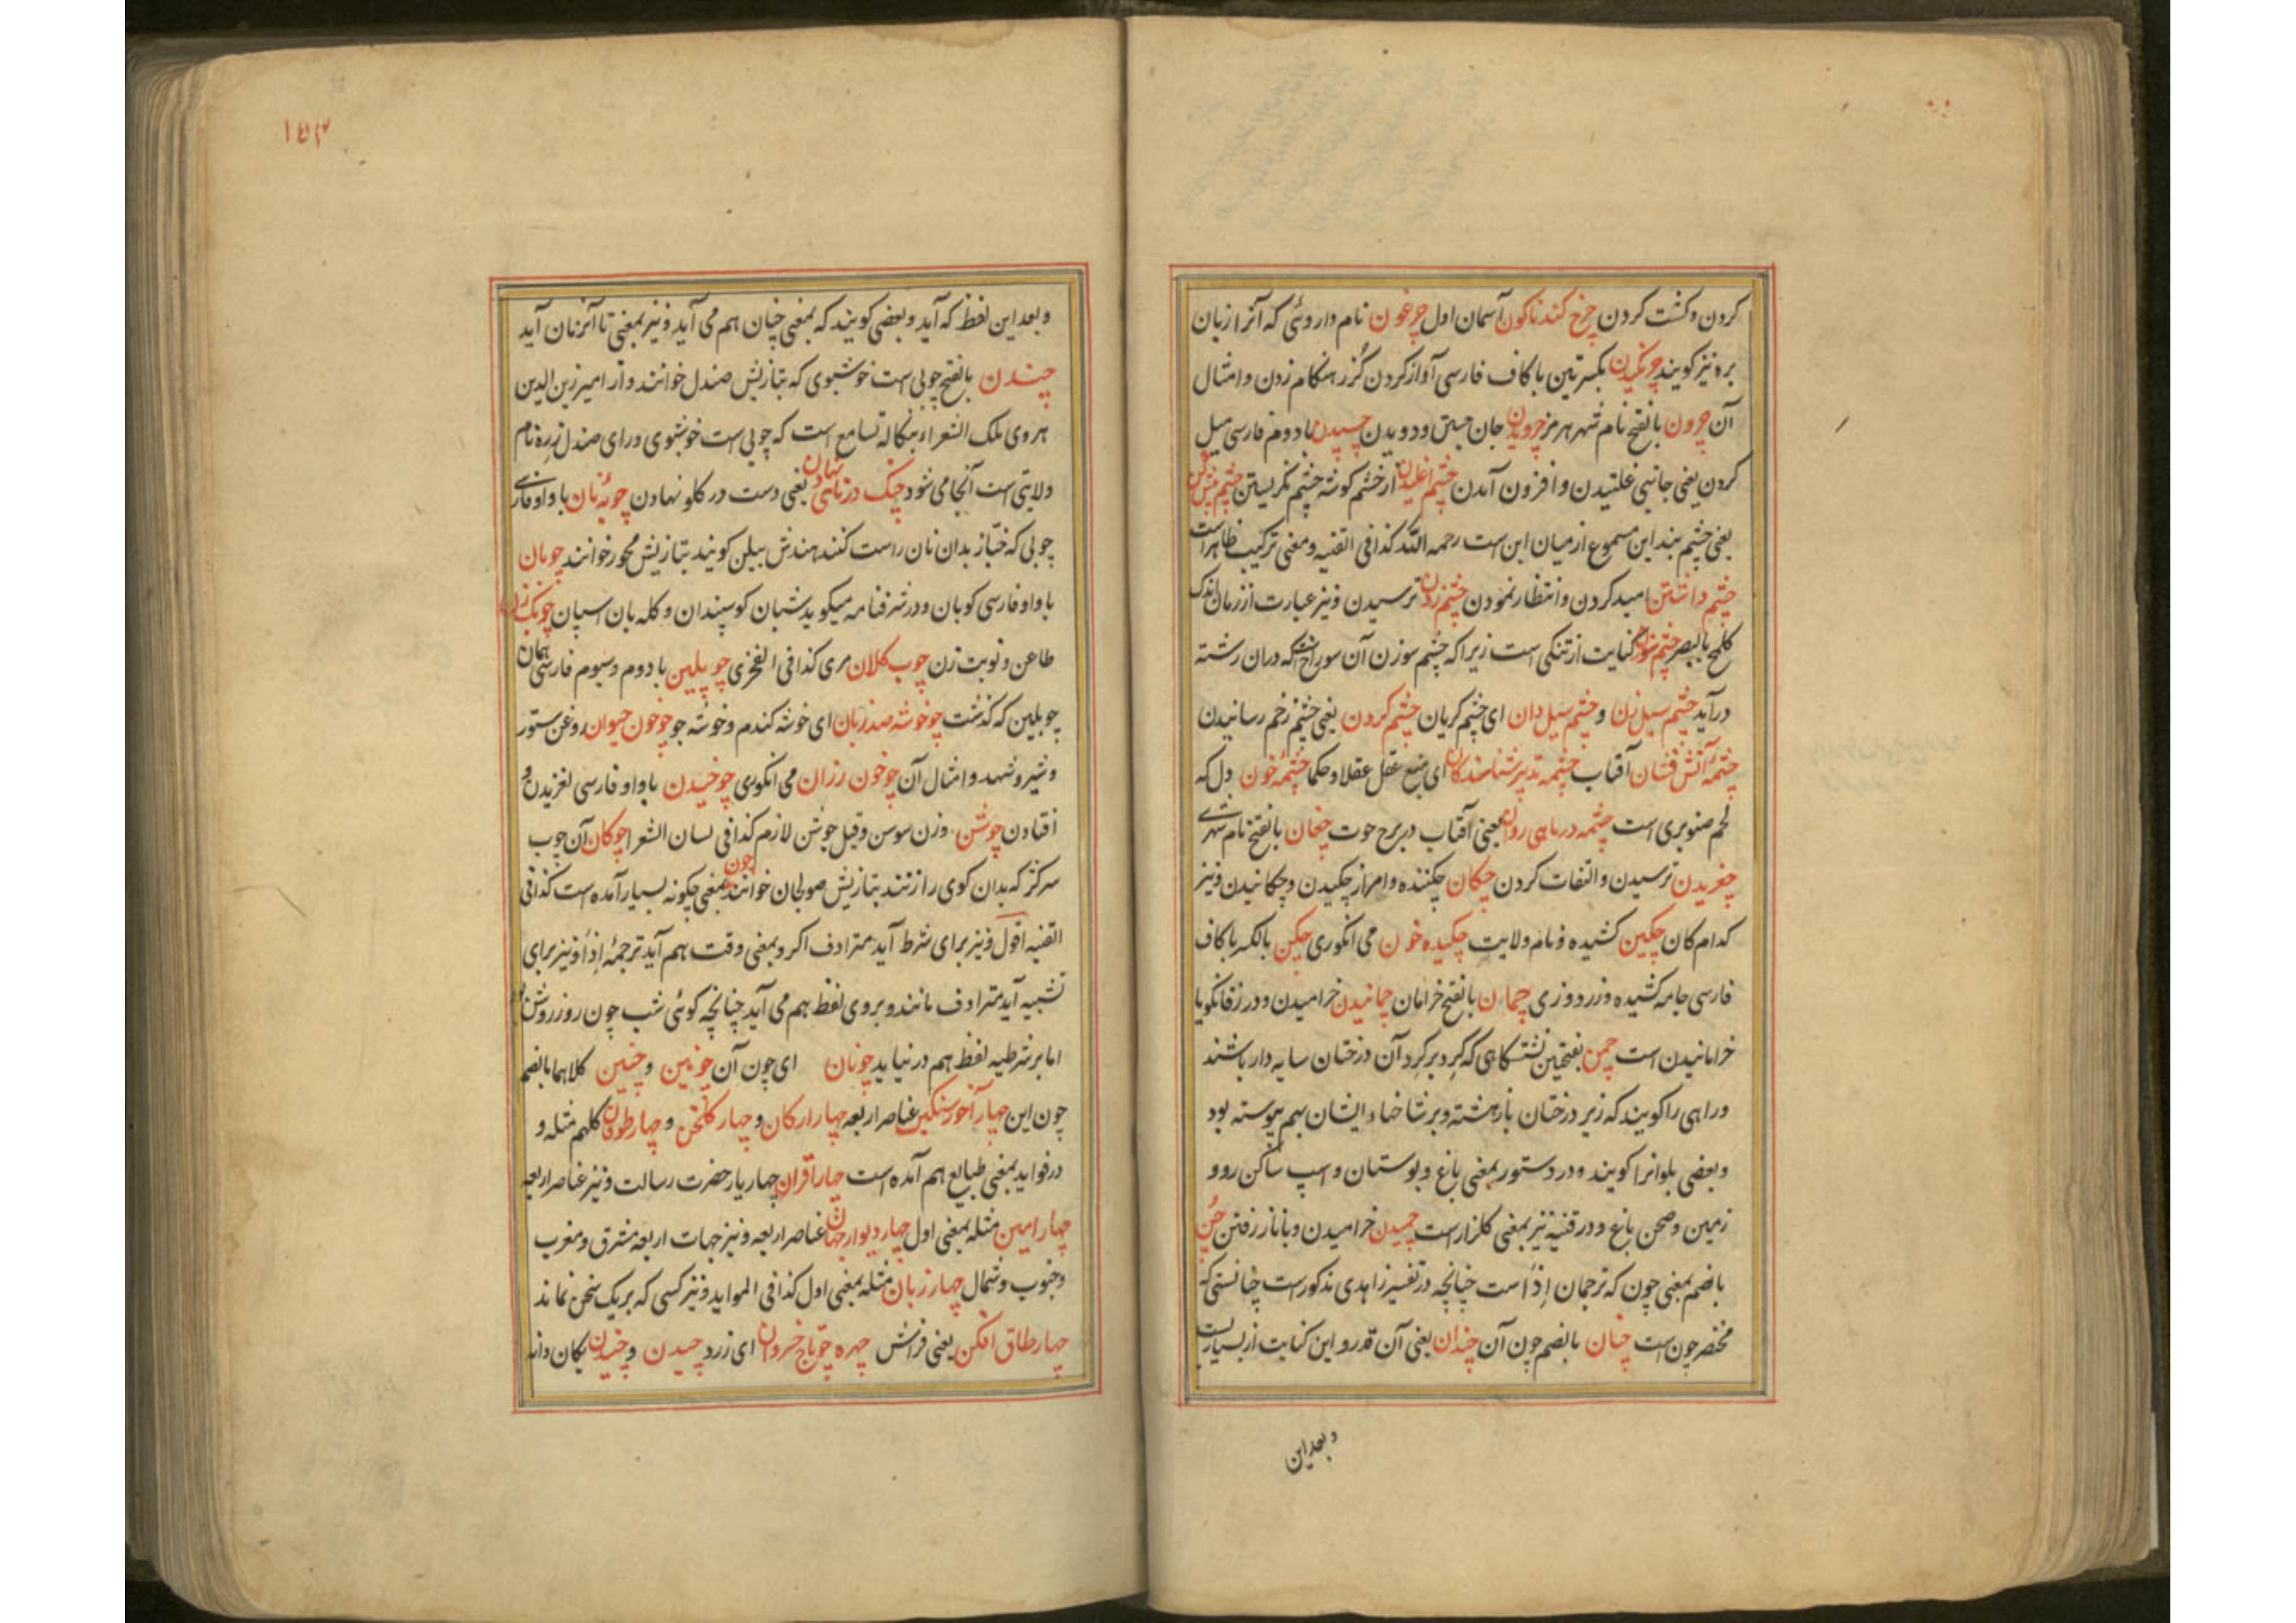 کردن و کشت کردن چرخ کندناکون آسمان اول چرغون نام داروئی که آنرا زبان
بره نیز کویند چرنکیدن بکسرتین با کاف فارسی آواز کردن کُرز هنکام زدن و امثال
آن چرون بالفتح نام شهر هرمز چرویدن جان جستن و دویدن چسپیدن با دوم فارسی میل
کردن یعنی جانبی غلتیدن و افزون آمدن چشم اغلیدن از خشم کوشه چشم نکریستن چشم
یعنی چشم بند این مسموع از میان ابن است رحمه الله کذا فی القنیه و معنی ترکیب ظاهر است
چشم داشتن امید کردن و انتظار نمودن چشم زدن ترسیدن و نیز عبارت از زمان اندک
کلمح بالبصر چشم سوزن کنایت از تنکی است زیرا که چشم سوزن آن سوراخ که دران رشته
درآید چشم سیل زن و چشم سیل دان ای چشم کریان چشم کردن یعنی چشم زخم رسانیدن
چشمه آتش فشان آفتاب چشمه تدبیر شناسندکان ای منبع عقل عقلا و حکما چشمه خون دل که
لحم صنوبری است چشمه در ماهی روان یعنی آفتاب در برج حوت چغان بالفتح نام شهری
چغریدن ترسیدن و التفات کردن چکان چکننده و امر از چکیدن و چکانیدن و نیز
کدام کان چکین کشیده و نام ولایت چکیده خون می انکوری چکن بالکسر با کاف
فارسی جامه کشیده و زردوزی چمان بالفتح خرامان چمانیدن خرامیدن و در زفانکویا
خرامانیدن است چمن بفتحتین نشستکاهی که کرد بر کرد آن درختان سایه دار باشند
و راهی را کویند که زیر درختان باز هشته و بر شاخهاء ایشان بهم پیوسته بود
و بعضی بلوانرا کویند و در دستور بمعنی باغ و بوستان و اسپ ساکن رو و
زمین و صحن باغ و در قنیه نیز بمعنی کلزار است چمیدن خرامیدن و با ناز رفتن چُن
بالضم بمعنی چون که ترجمان اِذا است چنانچه در تفسیر زاهدی مذکور است چنانستی که
مختصر چون است چنان بالضم چون آن چندان یعنی آن قدر و این کنایت از بسیاریست
و بعد این
۱۵۳
و بعد این لفظ که آید و بعضی کویند که بمعنی چنان هم می آید و نیز بمعنی تا آنزمان آید
چندن بالفتح چوبی است خوشبوی که بتازیش صندل خوانند و از امیر زین الدین
هروی ملک الشعراء بنکاله تسامع است که چوبی است خوشبوی ورای صندل زیره نام
ولایتی است آنجا می شود چنک در زنان یعنی دست در کلو نهادن چوبه نان با واو فارسی
چوبی که خباز بدان نان راست کنند هندش بیلن کویند بتازیش محور خوانند چوبان
با واو فارسی کوبان و در شرفنامه میکوید شبان کوسپندان و کله بان اسپان چوبک زن
طاعن و نوبت زن چوب کلان مری کذا فی الفخری چوپلین با دوم و سیوم فارسی همان
چوبلین که کذشت چو خوشه صد زبان ای خوشه کندم و خوشه جو چو خون حیوان روغن ستور
و شیر و شهد و امثال آن چو خون رزان می انکوری چوخیدن با واو فارسی لغزیدن و
افتادن چوشن وزن سوسن و قیل جوشن لازم کذا فی لسان الشعرا چوکان آن چوب
سرکژ که بدان کوی را زنند بتازیش صولجان خوانند چون بمعنی چکونه بسیار آمده است کذا فی
القنیه اقول و نیز برای شرط آید مترادف اکر و بمعنی وقت هم آید ترجمهٔ اِذا و نیز برای
تشبیه آید مترادف مانند و بروی لفظ هم می آید چنانچه کوئی شب چون روز روشن بود
اما بر شرطیه لفظ هم در نیاید چونان ای چون آن چونین و چنین کلاهما بالضم
چون این چهار آخور سنکین عناصر اربعه چهار ارکان و چهار کلخن و چهار طوفان کلهم مثله و
در فواید بمعنی طبایع هم آمده است چهار اقران چهار یار حضرت رسالت و نیز عناصر اربعه
چهار امین مثله بمعنی اول چهار دیوار جهان عناصر اربعه و نیز جهات اربعه مشرق و مغرب
و جنوب و شمال چهار زبان مثله بمعنی اول کذا فی الموائد و نیز کسی که بر یک سخن نماند
چهار طاق افکن یعنی فراش چهره چو تاج خسروان ای زرد چیدن و چنیدن یکان دانه